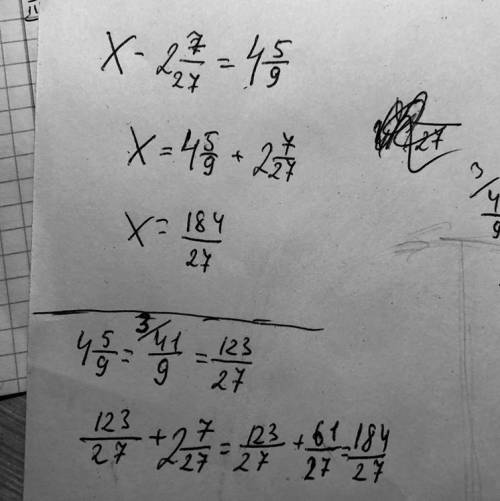 X - 2 7/27 = 4 5/9
X = 4 5/9 + 2 7/27
X = 184/27
27
3/ 4/9
4 5/9 = 3/ 41/9 = 123/27
123/27 + 2 7/27 = 123/27 + 61/27 = 184/27